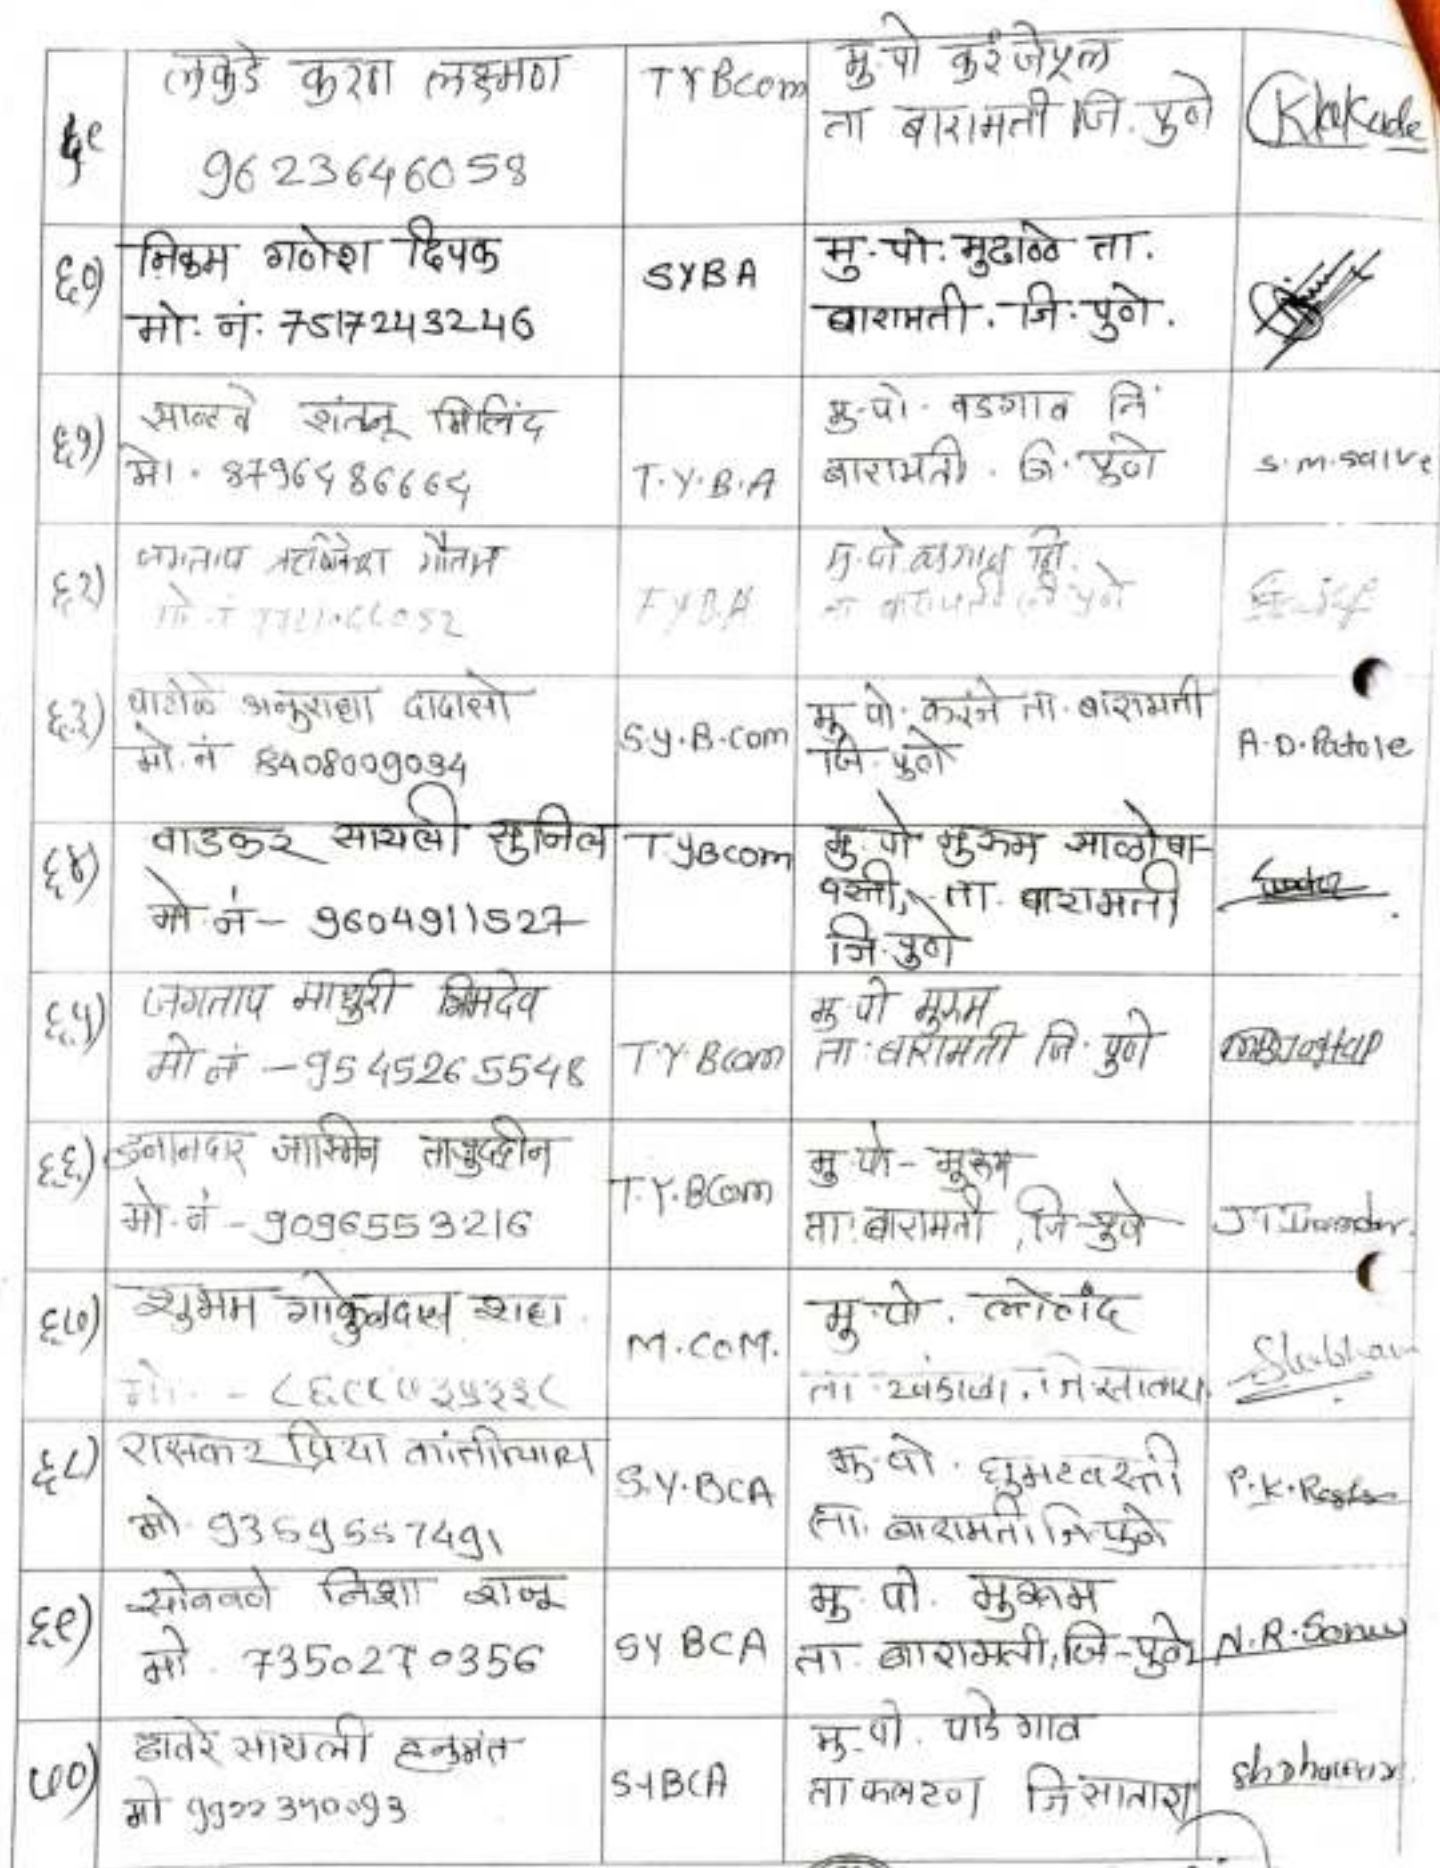 ५९
लकडे कुरणा लक्ष्मण
9623646058
TYBcom
मु.पो करंजेपूल
ता बारामती जि. पुणे
६०)
निकम गणेश दिपक
मो. नं. 7517243246
SYBA
मु. पो. मुढाळे ता.
बारामती. जि. पुणे.
६१)
साळवे शंतनू मिलिंद
मो. 8796486664
T.Y.B.A
मु.पो. वडगाव नि
बारामती. जि. पुणे
S.M.Salve
६२)
जगताप ऋषिकेश गौतम
मो. नं
FYBA
मु.पो वडगाव नि.
ता बारामती जि पुणे
६३)
पाटोळे अनुराधा दादासो
मो. नं 8408009034
S.Y.B.com
मु. पो. करंजे ता. बारामती
जि. पुणे
A.D.Patole
६४)
वाडकर सायली सुनिल
मो. नं- 9604911527
TYBcom
मु. पो मुरूम साळोबा-
वस्ती, ता. बारामती
जि. पुणे
६५)
जगताप माधुरी भिमदेव
मो नं -9545265548
T.Y.Bcom
मु. पो मुरूम
ता. बारामती जि. पुणे
MBJagtap
६६)
इनामदार जास्मिन ताजुद्दीन
मो. नं - 9096553216
T.Y.BCom
मु. पो- मुरूम
ता. बारामती, जि-पुणे
JT Inamdar.
६७)
शुभम गोकुळदास शहा.
मो. -
M.COM.
मु. पो. लोणंद
ता. खंडाळा, जि सातारा.
Shubham
६८)
रासकर प्रिया कांतीलाल
मो. 9359557491
S.Y.BCA
मु. पो. घुमटवस्ती
ता. बारामती जि पुणे
P.K.Raskar
६९)
सोनवणे निशा राजू
मो. 7350270356
SY BCA
मु. पो. मुरूम
ता. बारामती, जि-पुणे
N.R.Sonav
७०)
हातरे सायली हनुमंत
मो 9922340093
SYBCA
मु. पो. पाडेगाव
ता फलटण जि सातारा